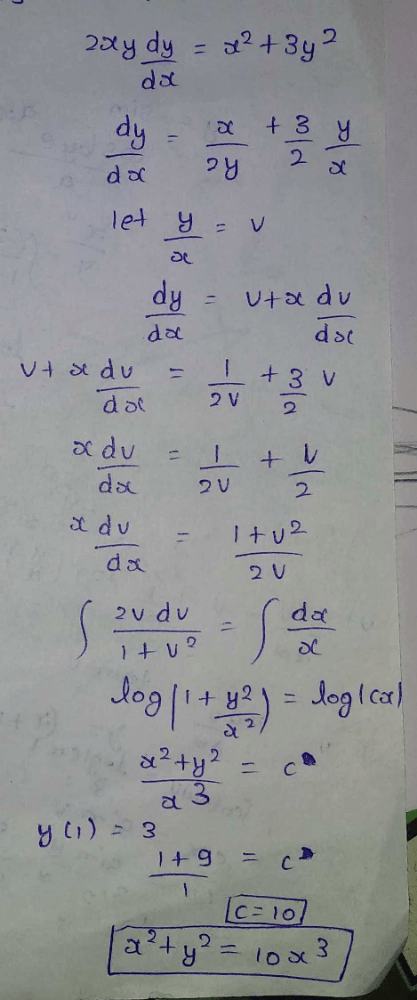 2xy dy/dx = x² + 3y²
dy/dx = x/2y + 3/2 y/x
let y/x = v
dy/dx = v + x dv/dx
v + x dv/dx = 1/2v + 3/2 v
x dv/dx = 1/2v + v/2
x dv/dx = 1+v²/2v
∫ 2v dv/1+v² = ∫ dx/x
log|1 + y²/x²| = log|cx|
x²+y²/x3 = c
y(1) = 3
1+9/1 = c
c=10
x²+y² = 10x³